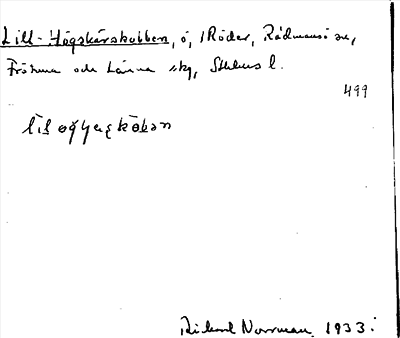 Lill-Högskärskobben, ö, i Röder, Rådmansö sn,
Frötuna och Länna skg, Sthlms l.
499
Rickard Norrman 1933.